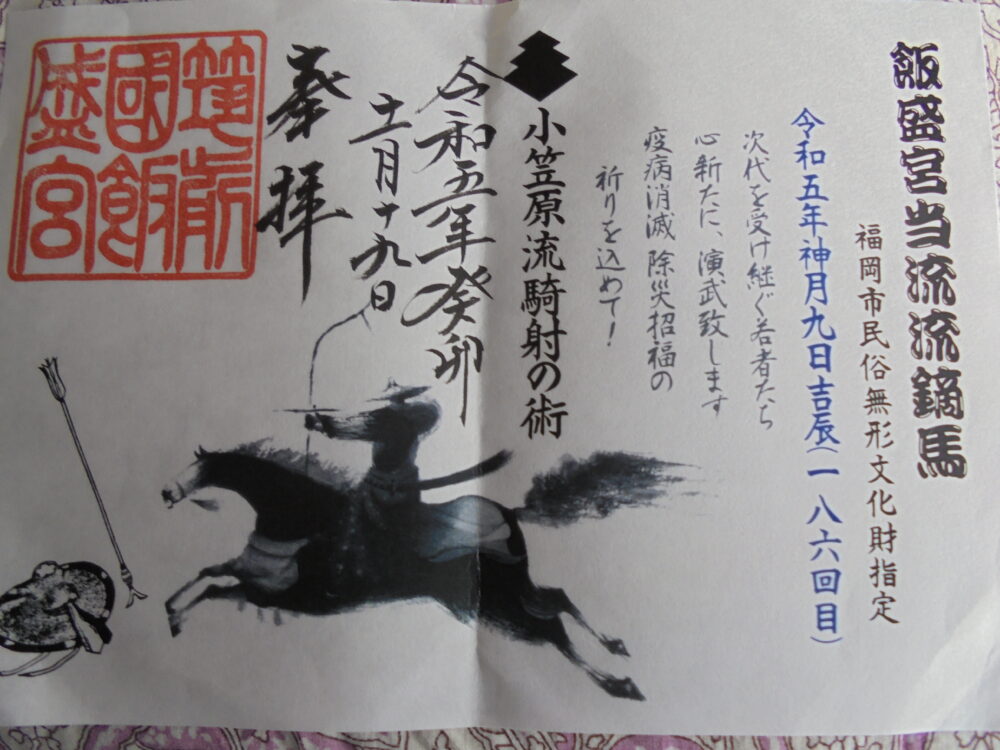 飯盛宮当流流鏑馬
福岡市民俗無形文化財指定
令和五年神月九日吉辰(一八六回目)
次代を受け継ぐ若者たち
心新たに、演武致します
疫病消滅 除災招福の
祈りを込めて!
小笠原流騎射の術
令和五年癸卯
十一月十九日
奉拝
筑前
國飯
盛宮